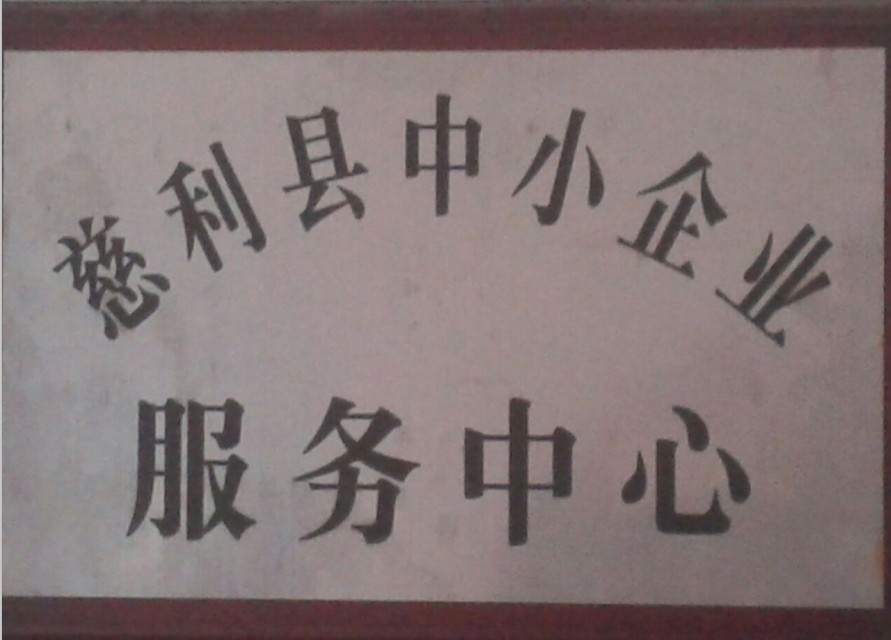 慈利县中小企业
服务中心